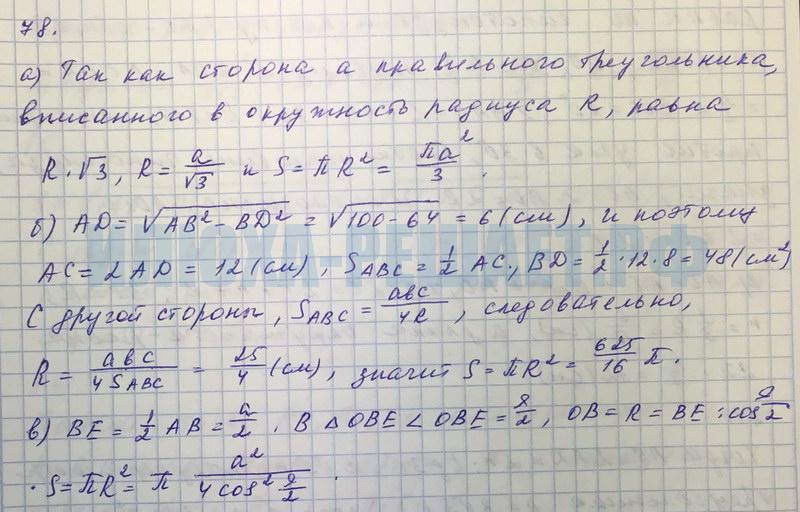 78.
а) Так как сторона а правильного треугольника,
вписанного в окружность радиуса R, равна
R·√3, R = a/√3 и S = πR² = πa²/3.
б) AD = √(AB² − BD²) = √(100 − 64) = 6 (см), и поэтому
AC = 2AD = 12 (см), S ABC = 1/2 AC, BD = 1/2 · 12 · 8 = 48 (см²)
С другой стороны, S ABC = abc/4R, следовательно,
R = abc/4S ABC = 25/4 (см), значит S = πR² = 625/16 π.
в) BE = 1/2 AB = a/2. В △OBE ∠OBE = α/2, OB = R = BE : cos α/2
. S = πR² = π a²/(4 cos² α/2).
ИЛЮХА-РЕШАЕТ.РФ